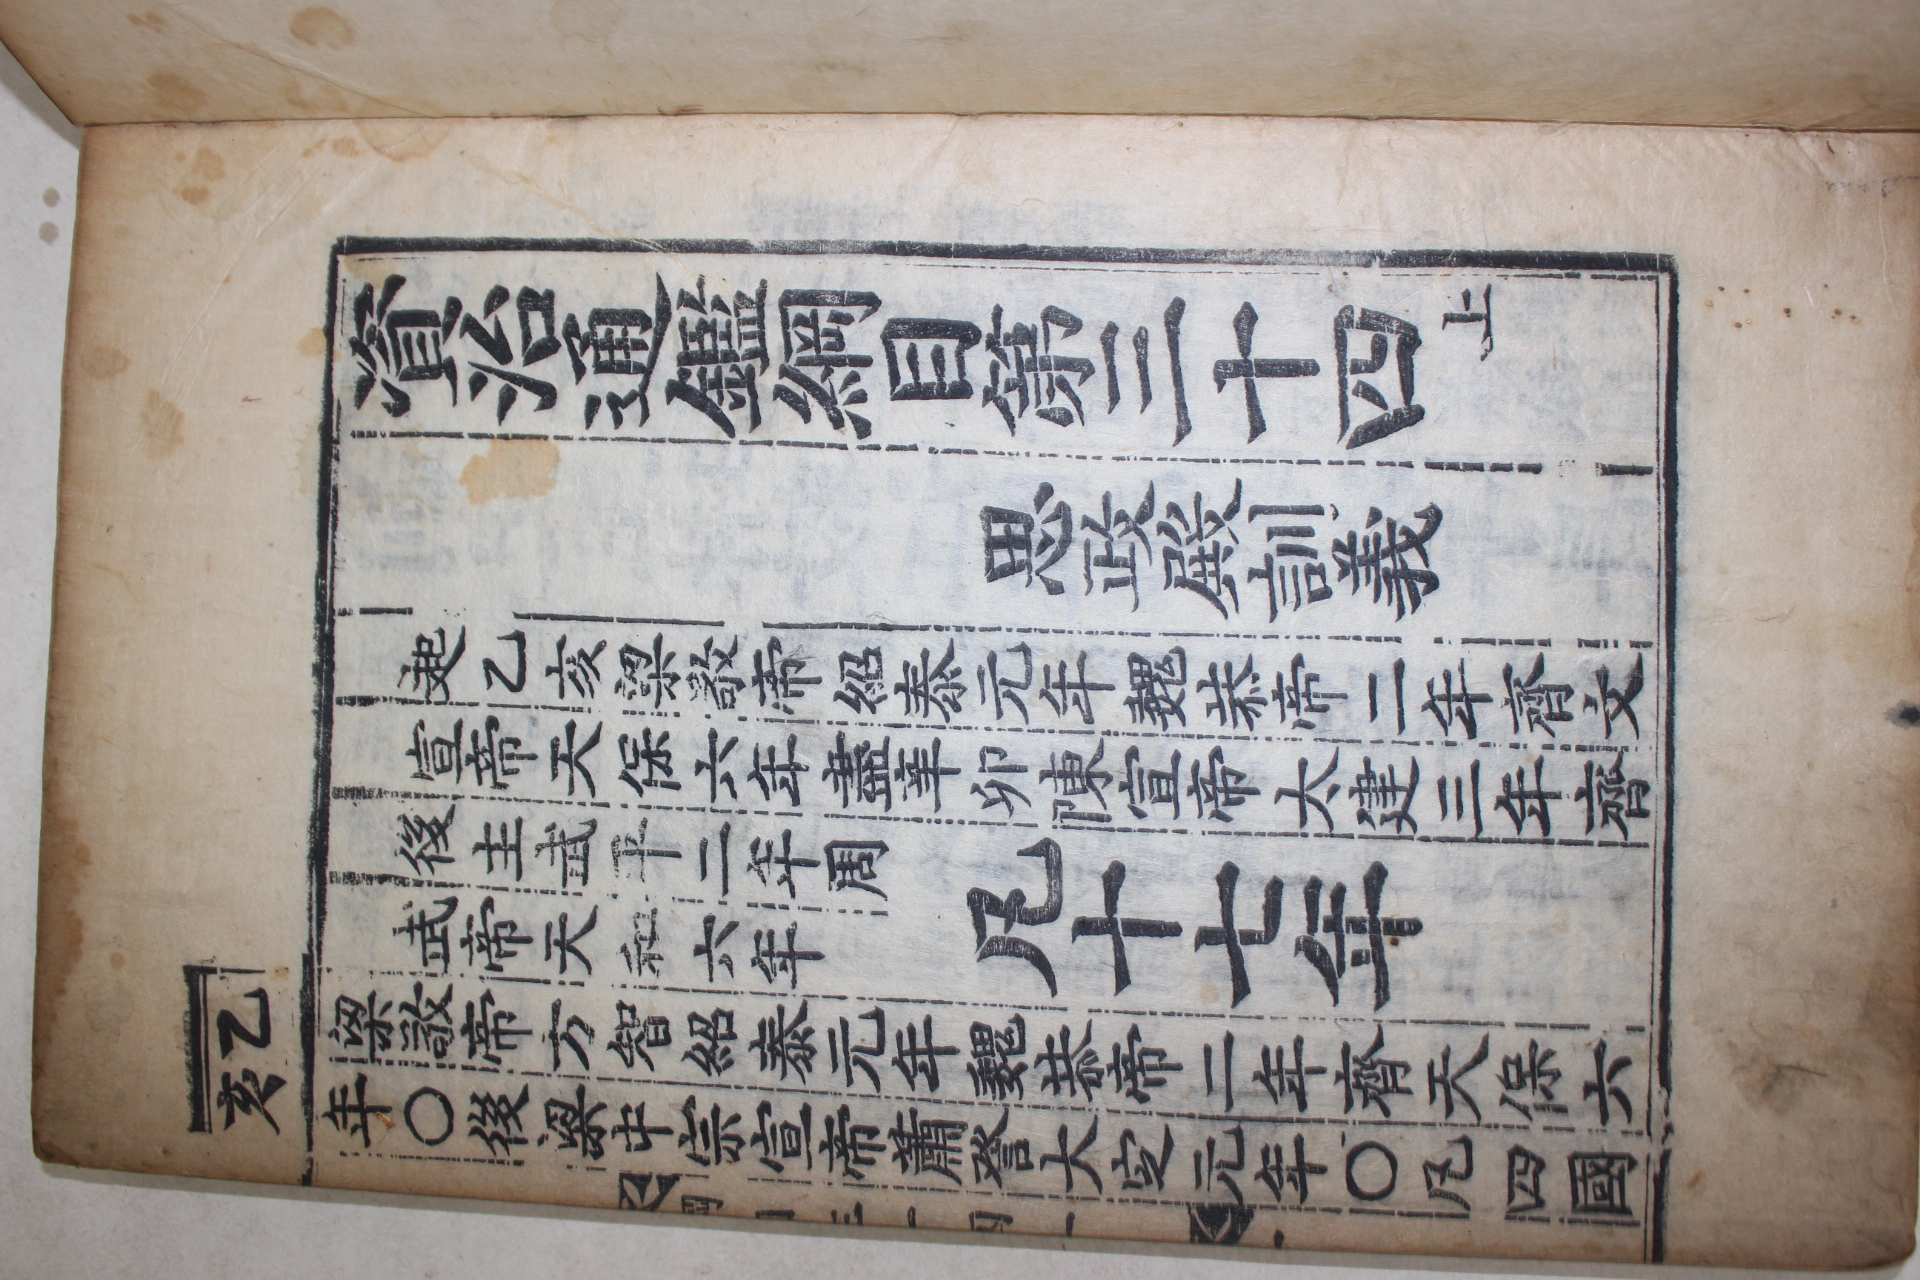 資治通鑑綱目第三十四上
思政殿訓義
起乙亥梁敬帝紹泰元年魏恭帝二年齊文
宣帝天保六年盡辛卯陳宣帝太建三年齊
後主武平二年周
武帝天和六年
凡十七年
乙亥
梁敬帝方智紹泰元年魏恭帝二年齊天保六
年〇後梁中宗宣帝蕭詧大定元年〇凡四國